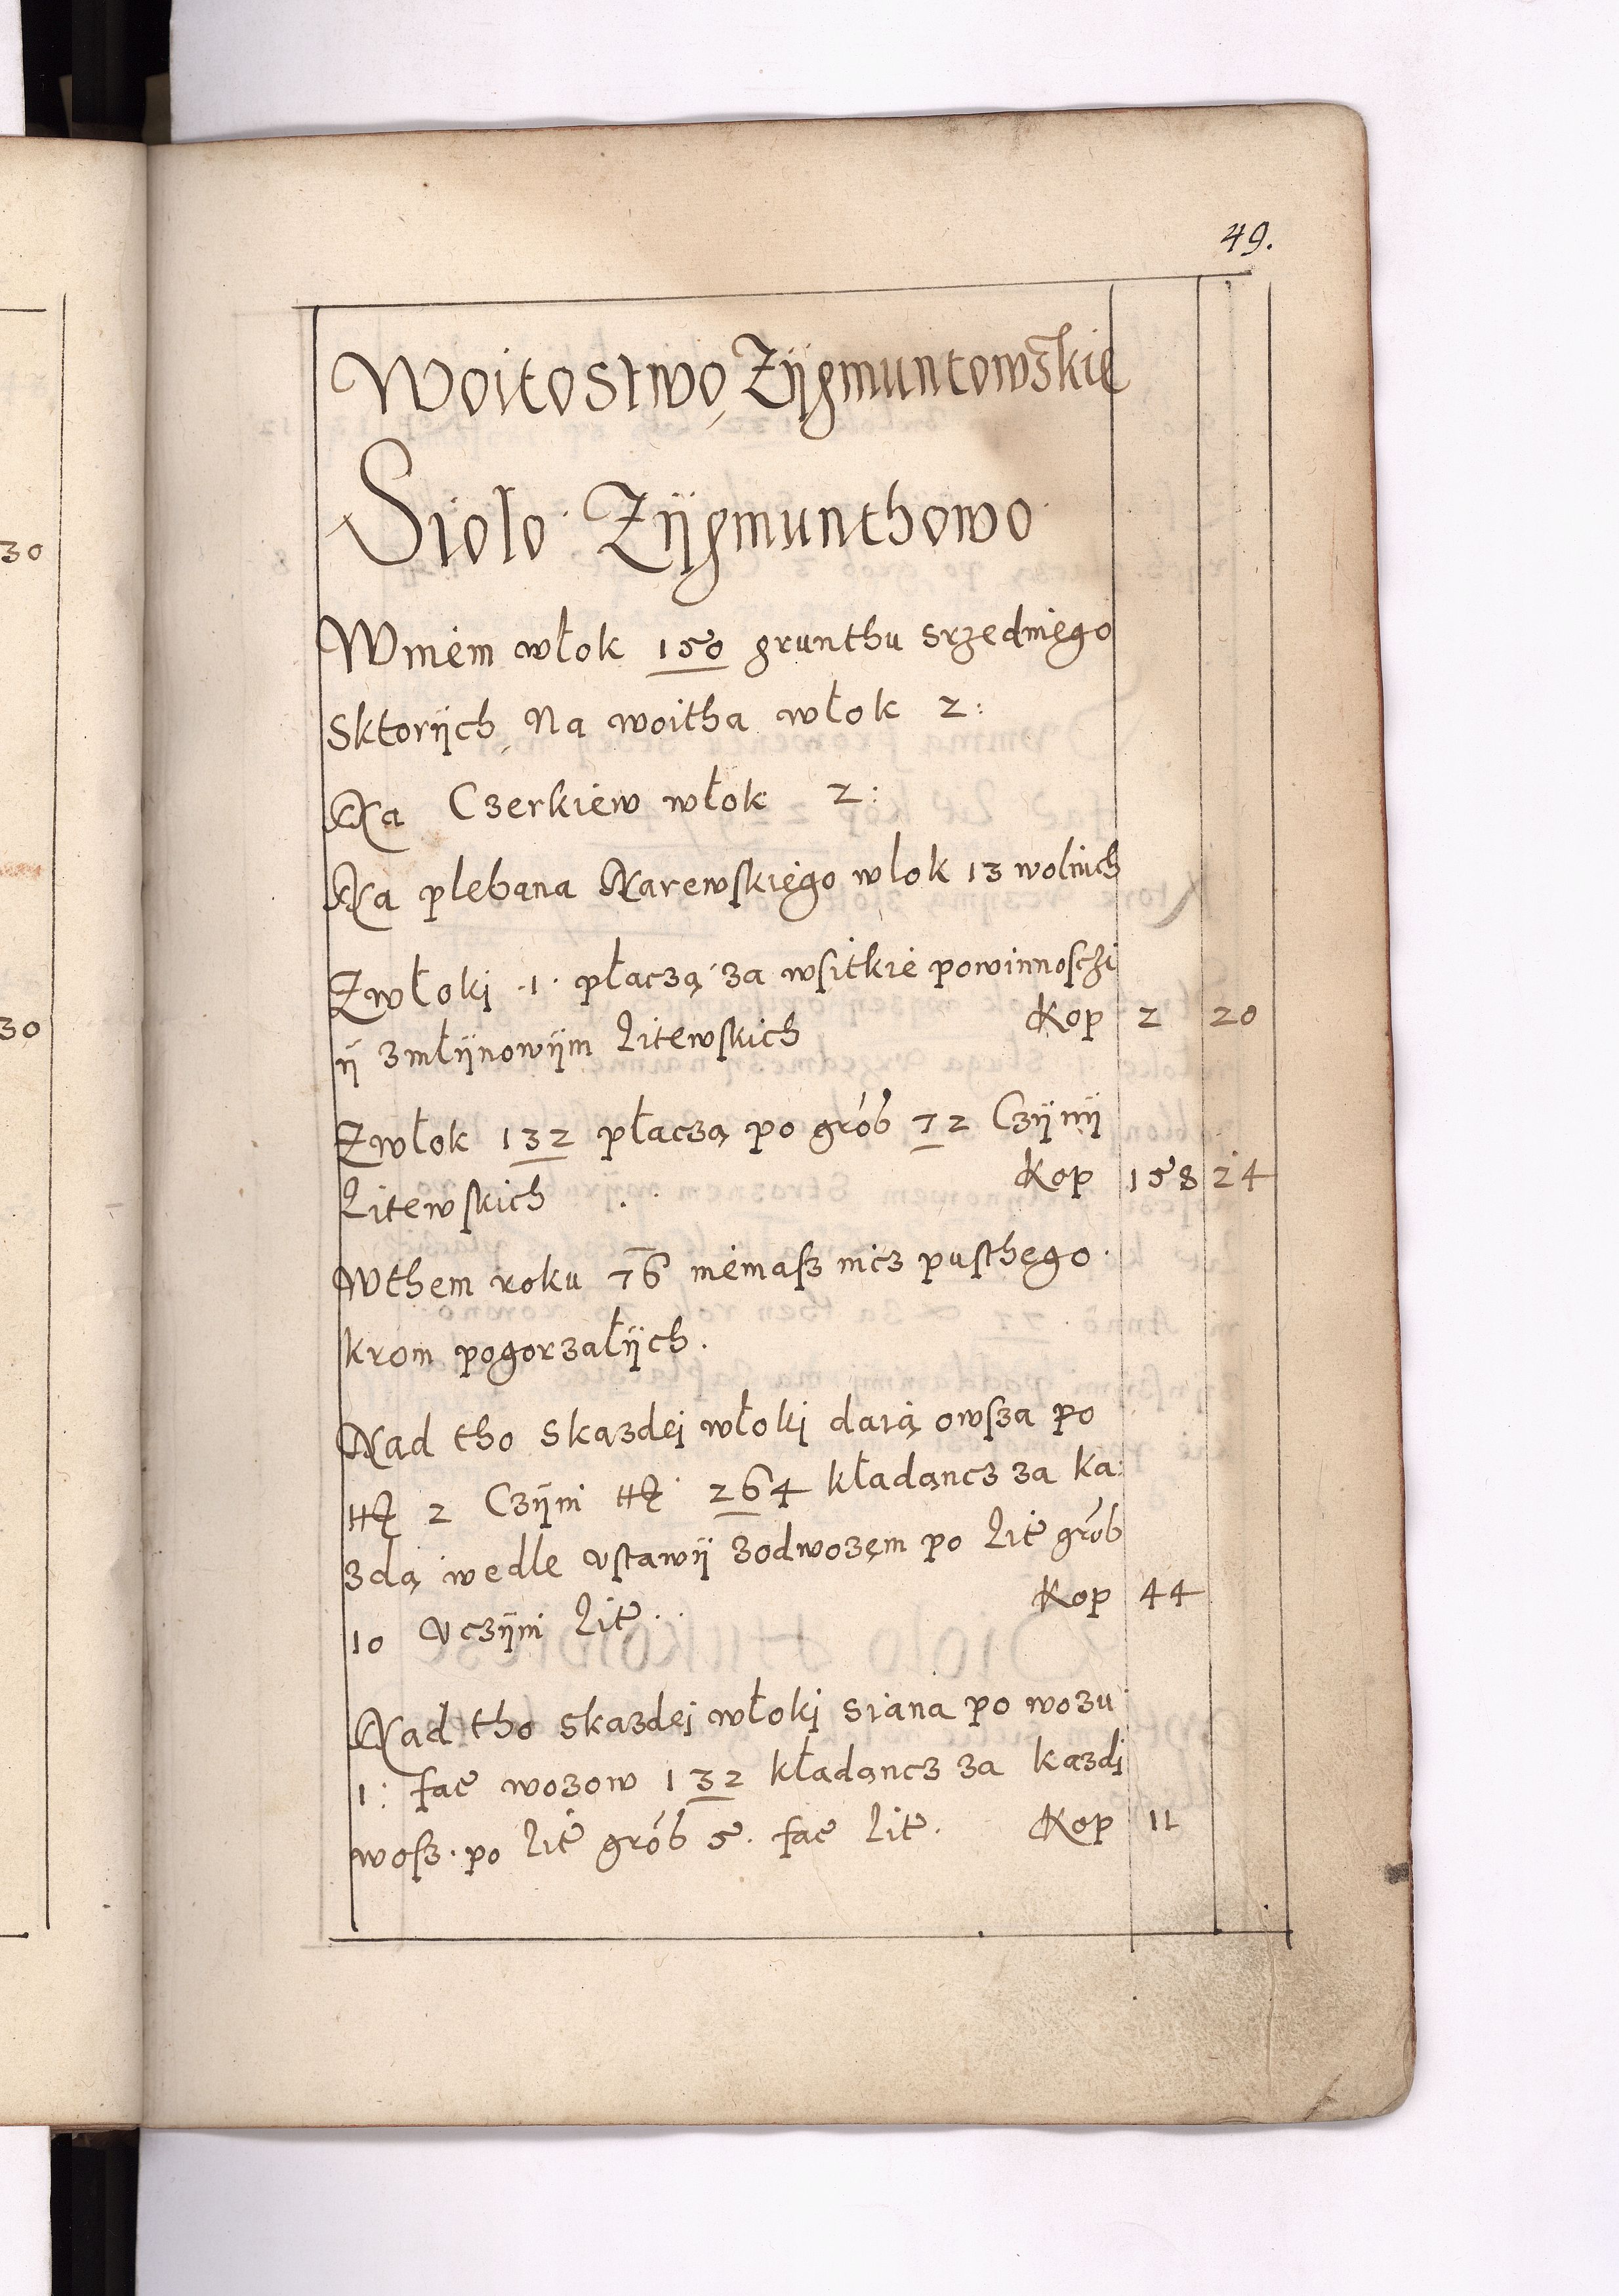 49.
Woitostwo Zÿgmuntowskie
Siolo Zÿgmunthowo
W niem włok 150 grunthu srzedniego
Sktorÿch Na woitha włok 2:
Na Czerkiew włok 2:
Na plebana Narewskiego wlok 13 wolnich
Zwłoki .1. płaczą za wsitkie powinnosczi
ÿ zmłÿnowÿm Litewskich Kop 2 20
Zwłok 132 płaczą po grob 72 Czÿnÿ
Litewskich Kop 158 24
Wthem roku 76 niemasz nicz pusthego
krom pogorzałÿch.
Nad tho skazdei włoki daią owsza po
2 Czÿni 264 kładancz za ka:
zdą wedle ustawÿ zodwozem po Lit grob
10 Uczÿni Lit. Kop 44
Nad tho skazdei włoki siana po wozu
1: fac wozow 132 kładancz za kazdi
wosz. po Lit grob 5. fac Lit. Kop 11
30
30